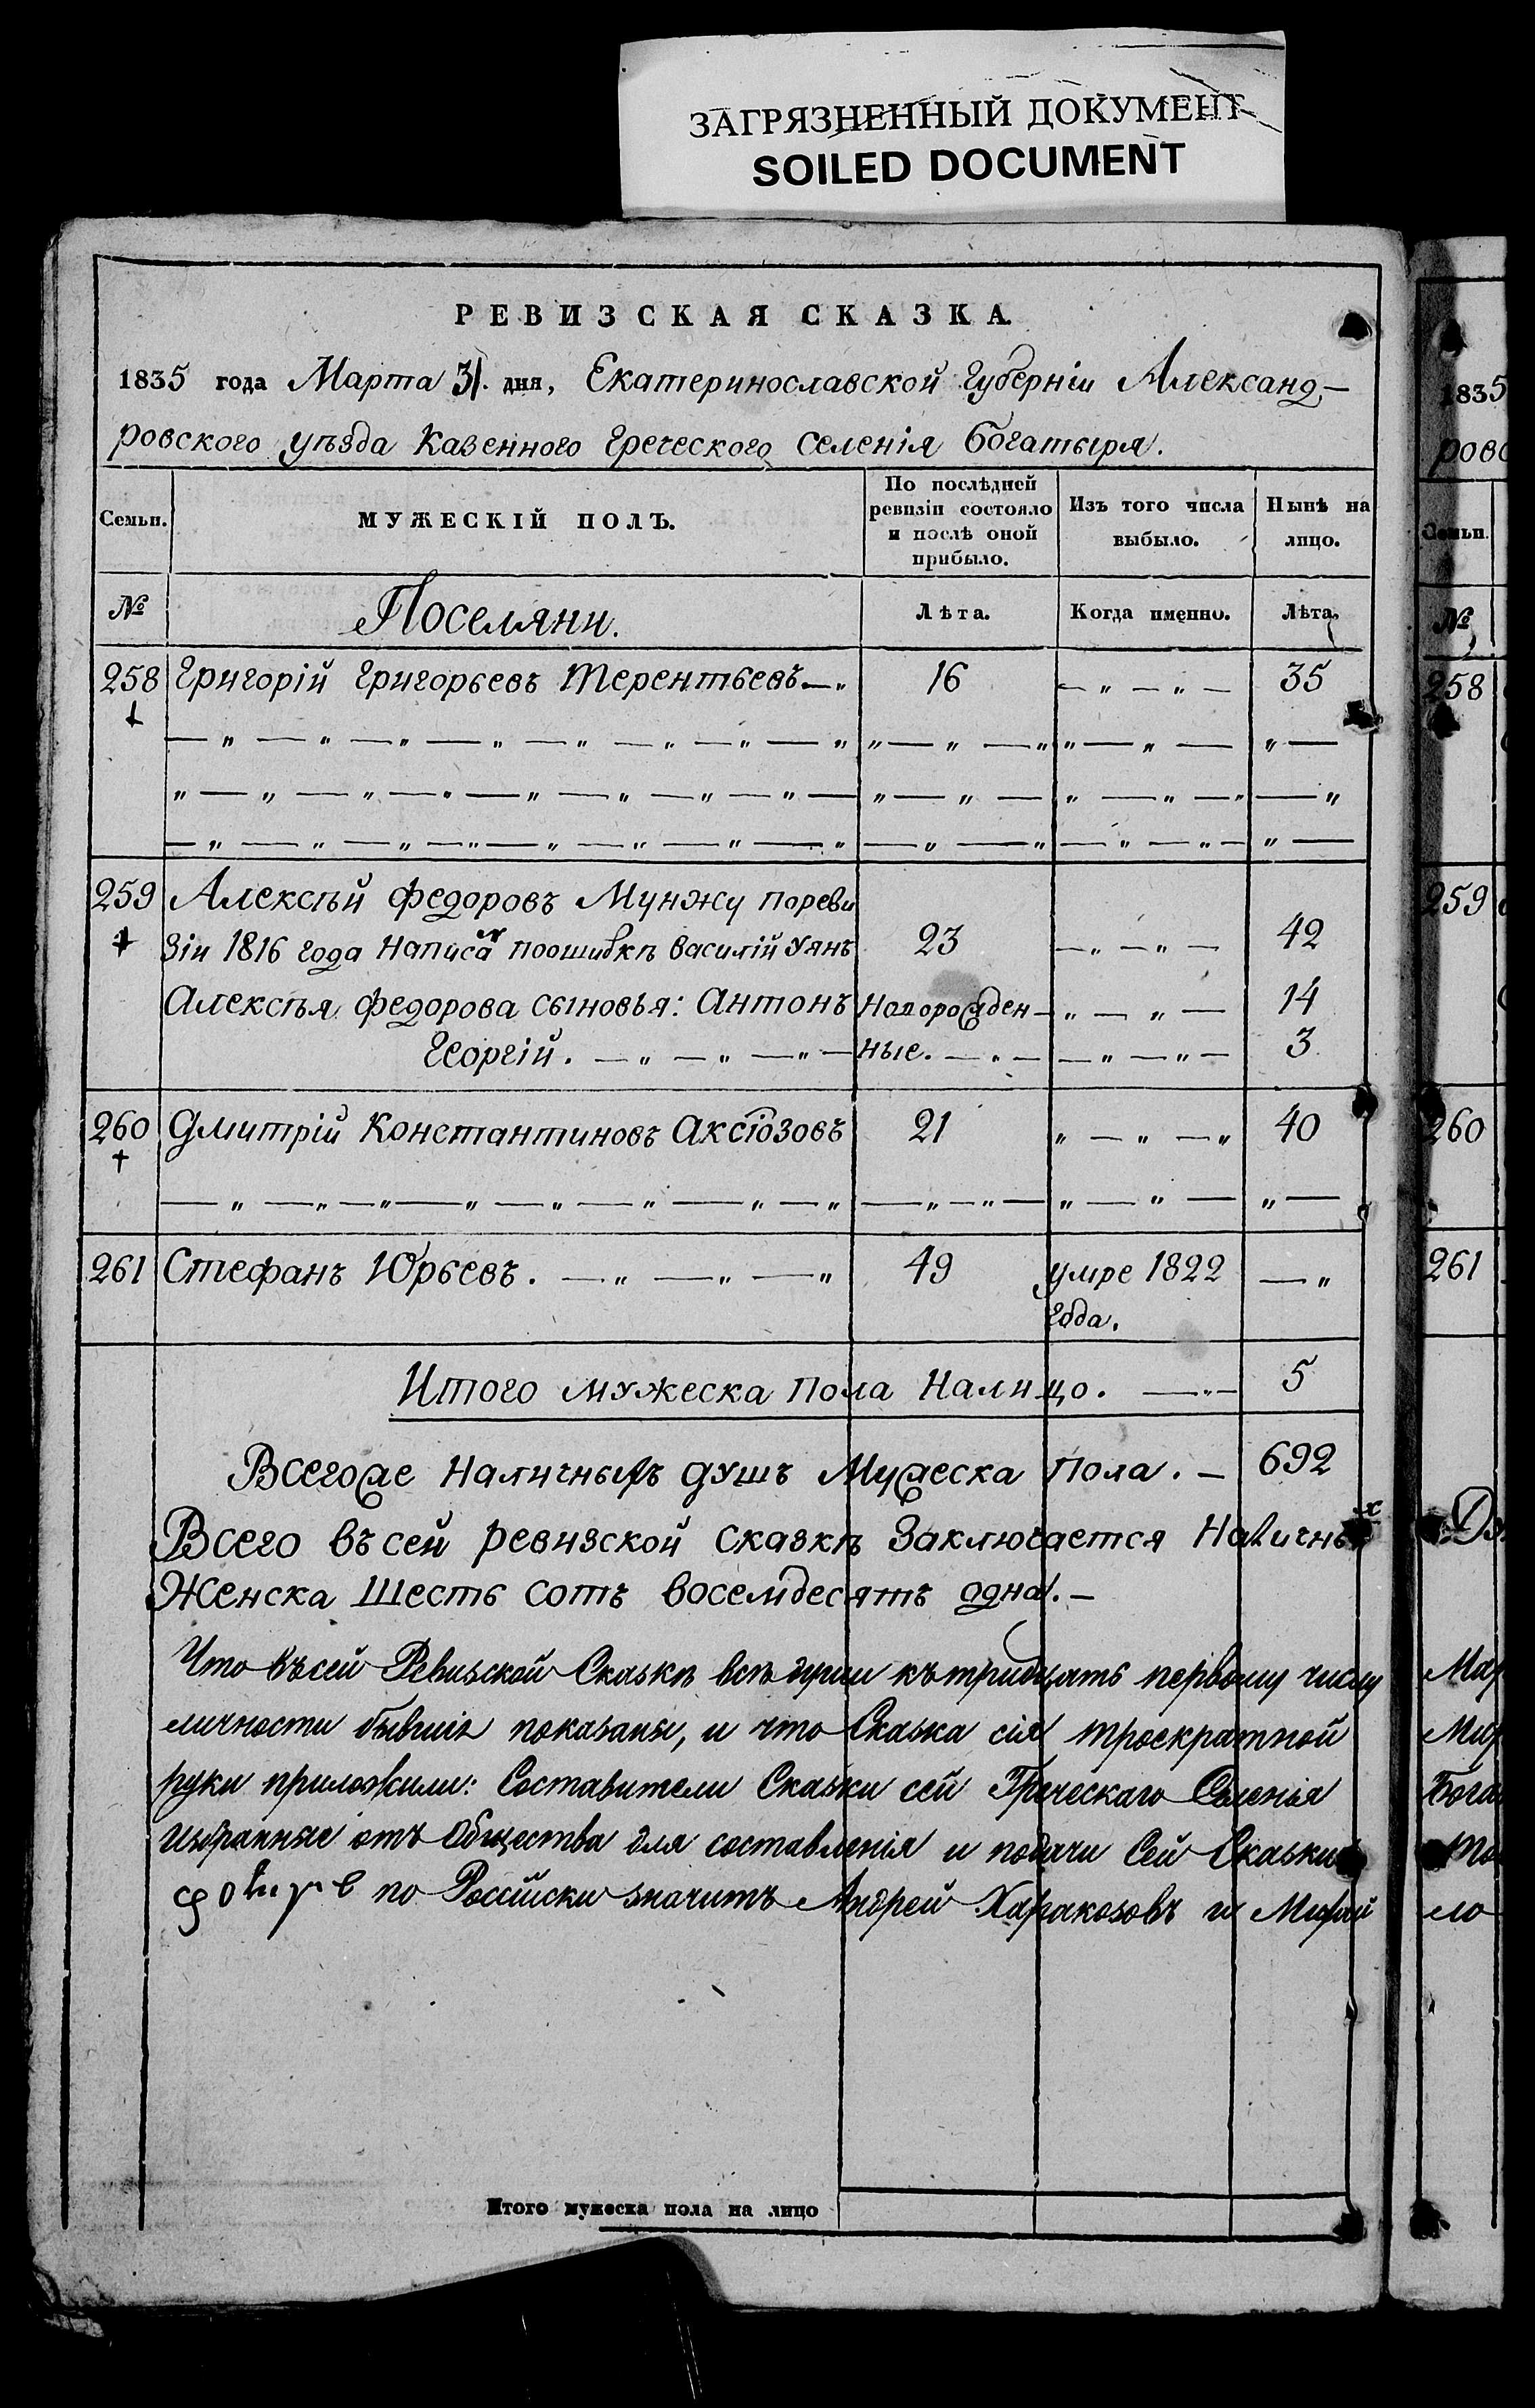 ЗАГРЯЗНЕННЫЙ ДОКУМЕНТ
SOILED DOCUMENT
РЕВИЗСКАЯ СКАЗКА.
1835 года Марта 31. дня, Екатеринославской Губерніи Александ-
ровского уѣзда Казенного Греческого Селенія Богатыря.
Семьи. МУЖЕСКІЙ ПОЛЪ. По послѣдней ревизіи состояло и послѣ оной прибыло. Изъ того числа выбыло. Нынѣ на лицо.
№ Поселяни. Лѣта. Когда именно. Лѣта.
258 Григорій Григорьевъ Терентьевъ 16 35
259 Алексѣй Федоровъ Мунжу пореви
зіи 1816 года Написа поошибкѣ Василій Уянъ 23 42
Алексѣя Федорова сыновья: Антонъ Новорожден- 14
Георгій. ные. 3
260 Дмитрій Константиновъ Аксіозовъ 21 40
261 Стефанъ Юрьевъ. 49 умре 1822
года.
Итого мужеска Пола Налицо. 5
Всегоже Наличныхъ душъ Мужеска Пола. 692
Всего въ сей ревизской сказкѣ Заключается Наличны х
Женска Шесть Сотъ восемдесятъ одна.
Что въ сей Ревизской Сказкѣ всѣ души къ тридцать первому числу
личности бывшія показаны, и что Сказка сія троекратной
руки приложили: Составители Сказки сей Греческаго Селенія
Избранные отъ Общества для составленія и подачи Сей Сказки
по Россійски значитъ Андрей Харакозовъ и
Итого мужеска пола на лицо
1835
ровс
Семьи.
№
258
259
260
261
Мар
Бога
то
ло